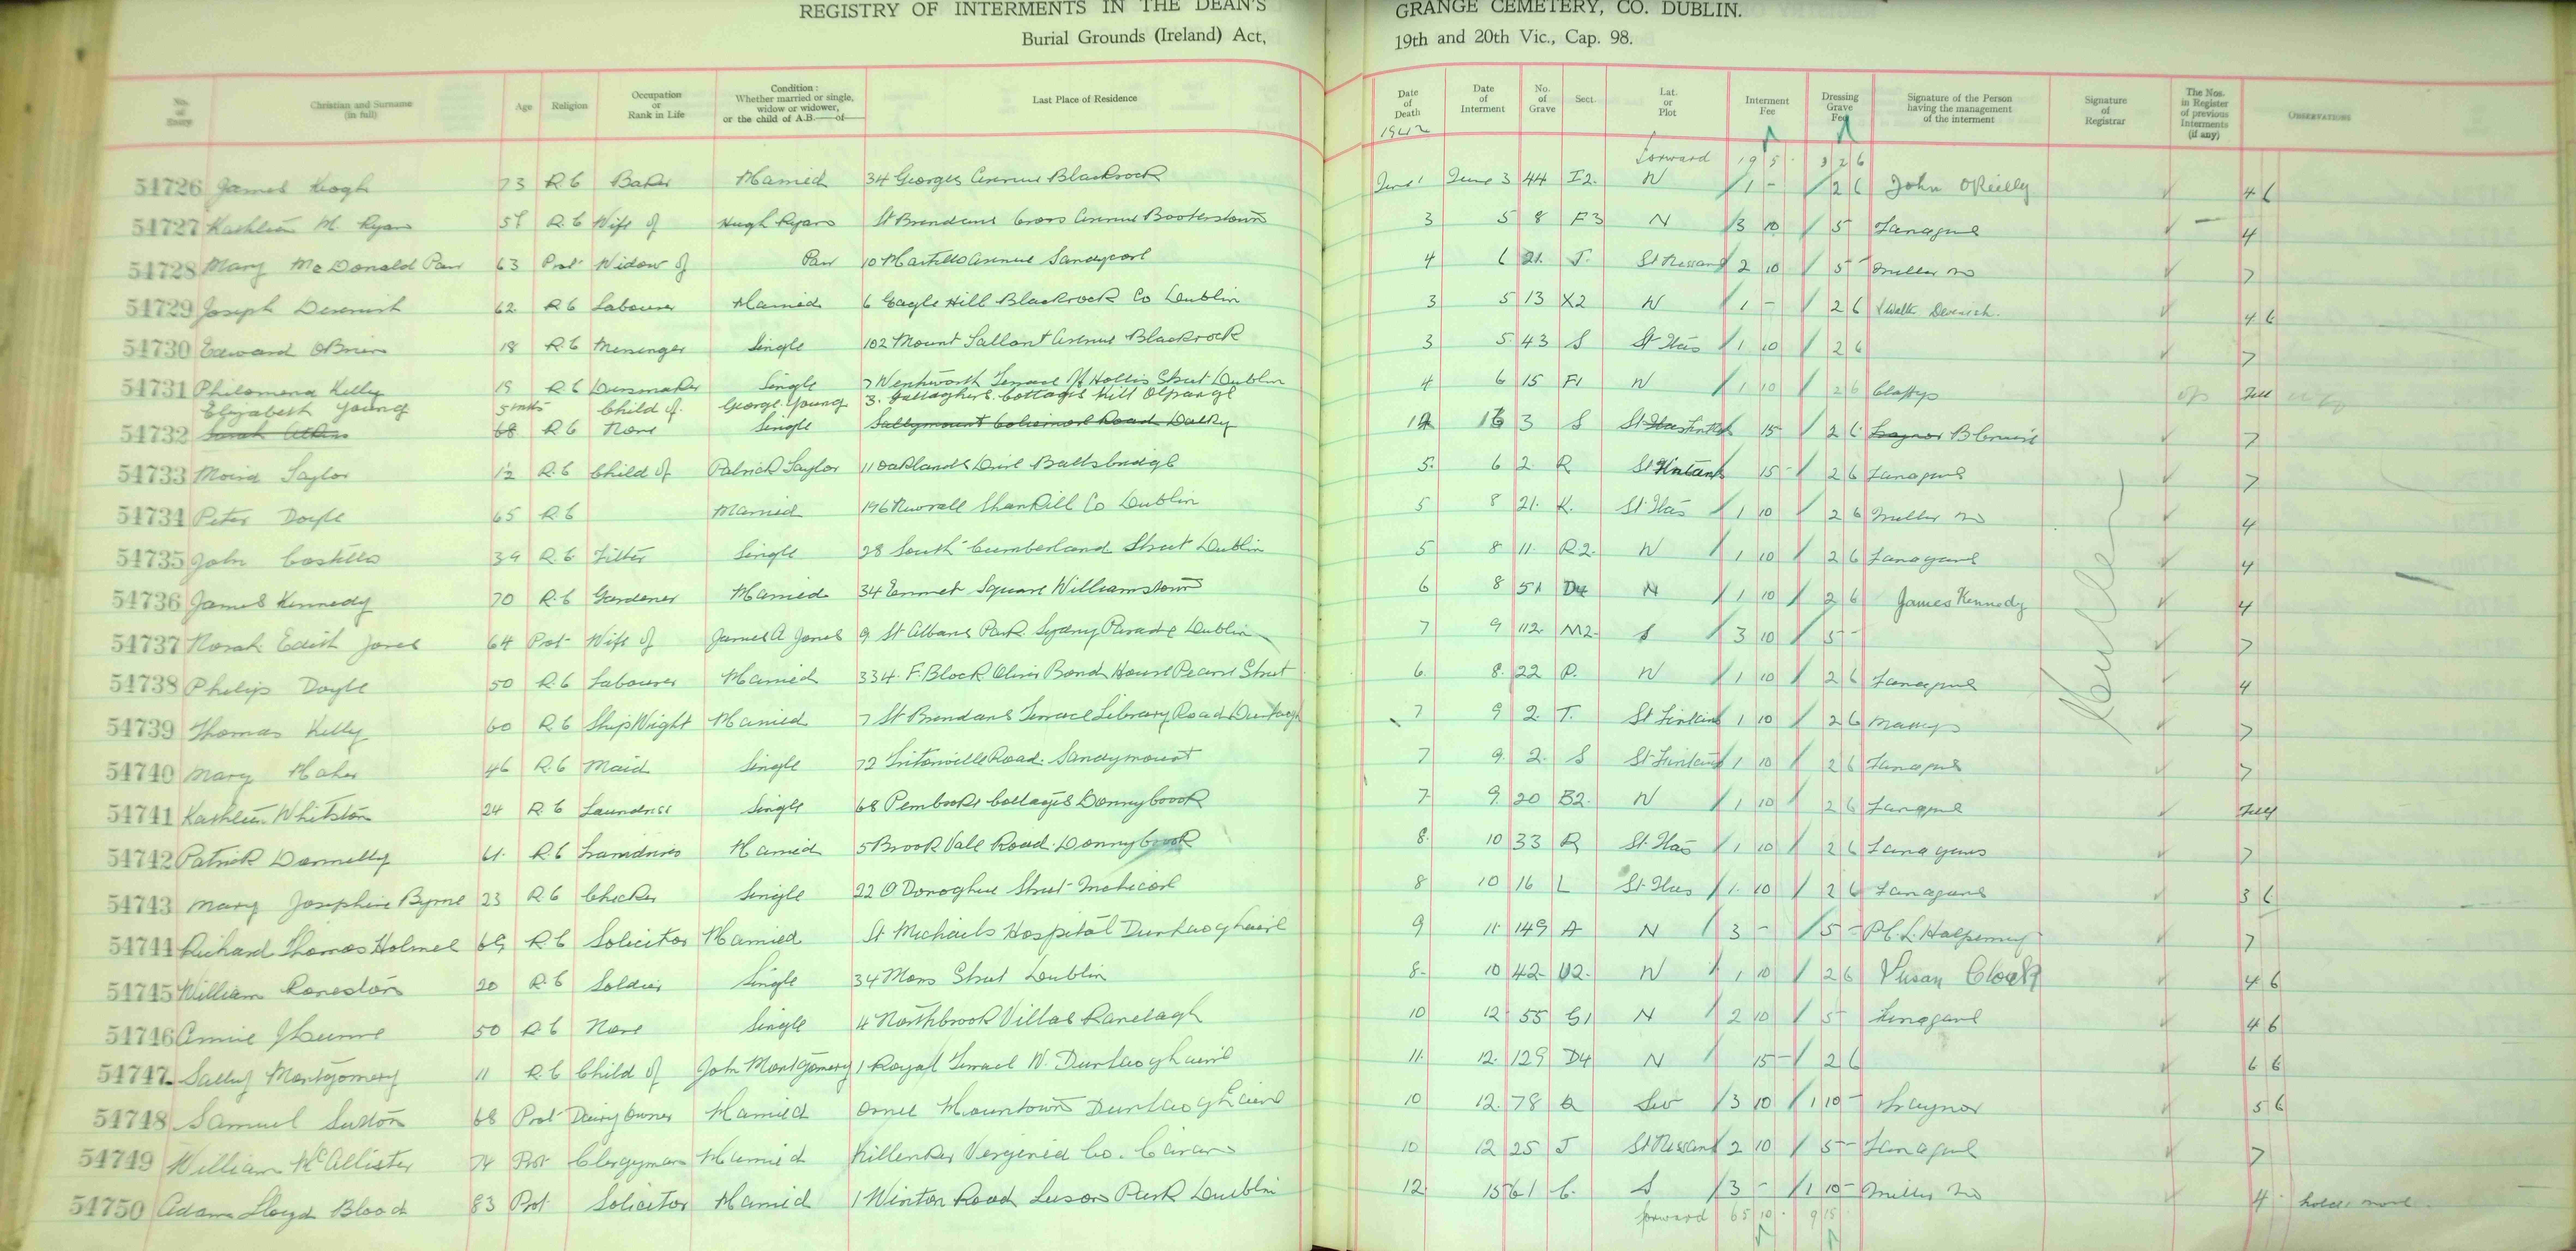 REGISTRY OF INTERMENTS IN THE DEAN'S GRANGE CEMETERY, CO. DUBLIN.
Burial Grounds (Ireland) Act, 19th and 20th Vic., Cap. 98.
No. of Entry Christian and Surname (in full) Age Religion Occupation or Rank in Life Condition: Whether married or single, widow or widower, or the child of A.B.—of— Last Place of Residence Date of Death Date of Interment No. of Grave Sect. Lat. or Plot Interment Fee Dressing Grave Fee Signature of the Person having the management of the interment Signature of Registrar The Nos. in Register of previous Interments (if any) OBSERVATIONS
1942
forward 19 5 3 2 6
54726 James Keogh 73 R C Baker Married 34 Georges Avenue Blackrock June 1 June 3 44 I2. N 1 - 2 6 John OReilly 4 6
54727 Kathleen M. Ryan R. C Wife of Hugh Ryan St Brendans Cross Avenue Booterstown 3 5 8 F3 N 3 10 5 Fanagans 4
54728 Mary McDonald Parr 63 Prot Widow of Parr 10 Martello Avenue Sandycove 4 6 21. J. St Nessans 2 10 5 - 7
54729 Joseph Devenish 62 R C Labourer Married 6 Eagle Hill Blackrock Co Dublin 3 5 13 X2 N 1 - 2 6 Devenish. 4 6
54730 Edward OBrien 18 R. C Messenger Single 102 Mount Sallant Avenue Blackrock 3 5 43 S 1 10 2 6 7
54731 Philomena Kelly 19 R C Dressmaker Single 7 Wentworth Terrace Hollis Street Dublin 4 6 15 F1 N 1 10 2 6 Full
Elizabeth Young 5 mts Child of George Young 3. Gallaghers Cottages Kill OGrange
54732 Sarah 68 R C None Single Sallymount Coliemore Road Dalky 3 S 15 2 6 7
54733 Moira Taylor 12 R. C Child of Patrick Taylor 11 Oaklands Drive Ballsbridge 5. 6 2 R St Fintans 15 - 2 6 Fanagans 7
54734 Peter Doyle 65 R C Married 196 Shankill Co Dublin 5 8 21. K. 1 10 2 6 4
54735 John Costello 39 R C Fitter Single 28 South Cumberland Street Dublin 5 8 11. R2. N 1 10 2 6 Fanagans 4
54736 James Kennedy 70 R. C Gardener Married 34 Emmet Square Williamstown 6 8 51 D4 N 1 10 2 6 James Kennedy 4
54737 Norah Edith Jones 64 Prot Wife of James A Jones 9 St Albans Park Sydny Parade Dublin 7 9 112. M2. S 3 10 5 - 7
54738 Philip Doyle 50 R. C Labourer Married 334. F. Block Oliver Bond House Pearse Street 6. 8. 22 P. N 1 10 2 6 Fanagans 4
54739 Thomas Kelly 60 R. C Ship Wright Married 7 St Brendans Terrace Library Road 7 9 2. T. St Fintans 1 10 2 6 7
54740 Mary Maher 46 R. C Maid Single 72 Tritonville Road. Sandymount 7 9. 2. S St Fintans 1 10 2 6 Fanagans 7
54741 Kathleen Whitston 24 R. C Laundress Single 68 Pembroke Cottages Donnybrook 7 9. 20 B2. N 1 10 2 6 Fanagans Full
54742 Patrick Donnelly 61. R. C Married 5 Brook Vale Road. Donnybrook 8. 10 33 R 1 10 2 6 Fanagans 7
54743 Mary Josephine Byrne 23 R C Checker Single 22 O Donoghue Street Inchicore 8 10 16 L 1. 10 2 6 Fanagans 3 6
54744 Richard Thomas Holmes 69 R C Solicitor Married St Michaels Hospital Dunlaoghaire 9 11. 149 A N 3 - 5 - P. C. L. Halpenny 7
54745 William 20 R. C Soldier Single 34 Moss Street Dublin 8. 10 42- U2. N 1 10 2 6 Susan 4 6
54746 Annie 50 R C None Single 4 Northbrook Villas Ranelagh 10 12 55 G1 N 2 10 5 Fanagans 4 6
54747 Sally Montgomery 11 R. C Child of John Montgomery 1 Royal Terrace W. Dunlaoghaire 11. 12. 129 D4 N 15 - 2 6 6 6
54748 Samuel Sutton 68 Prot Dairy Owner Married Mountown Dunlaoghaire 10 12. 78 3 10 1 10 - 5 6
54749 William McAllister 74 Prot Clergyman Married Virginia Co. Cavan 10 12 25 J St Nessans 2 10 5 - Fanagans 7
54750 Adam Lloyd Blood 83 Prot Solicitor Married 1 Winton Road Leeson Park Dublin 12. 15 61 C. S 3 - 1 10 - 4
forward 65 10. 9 15